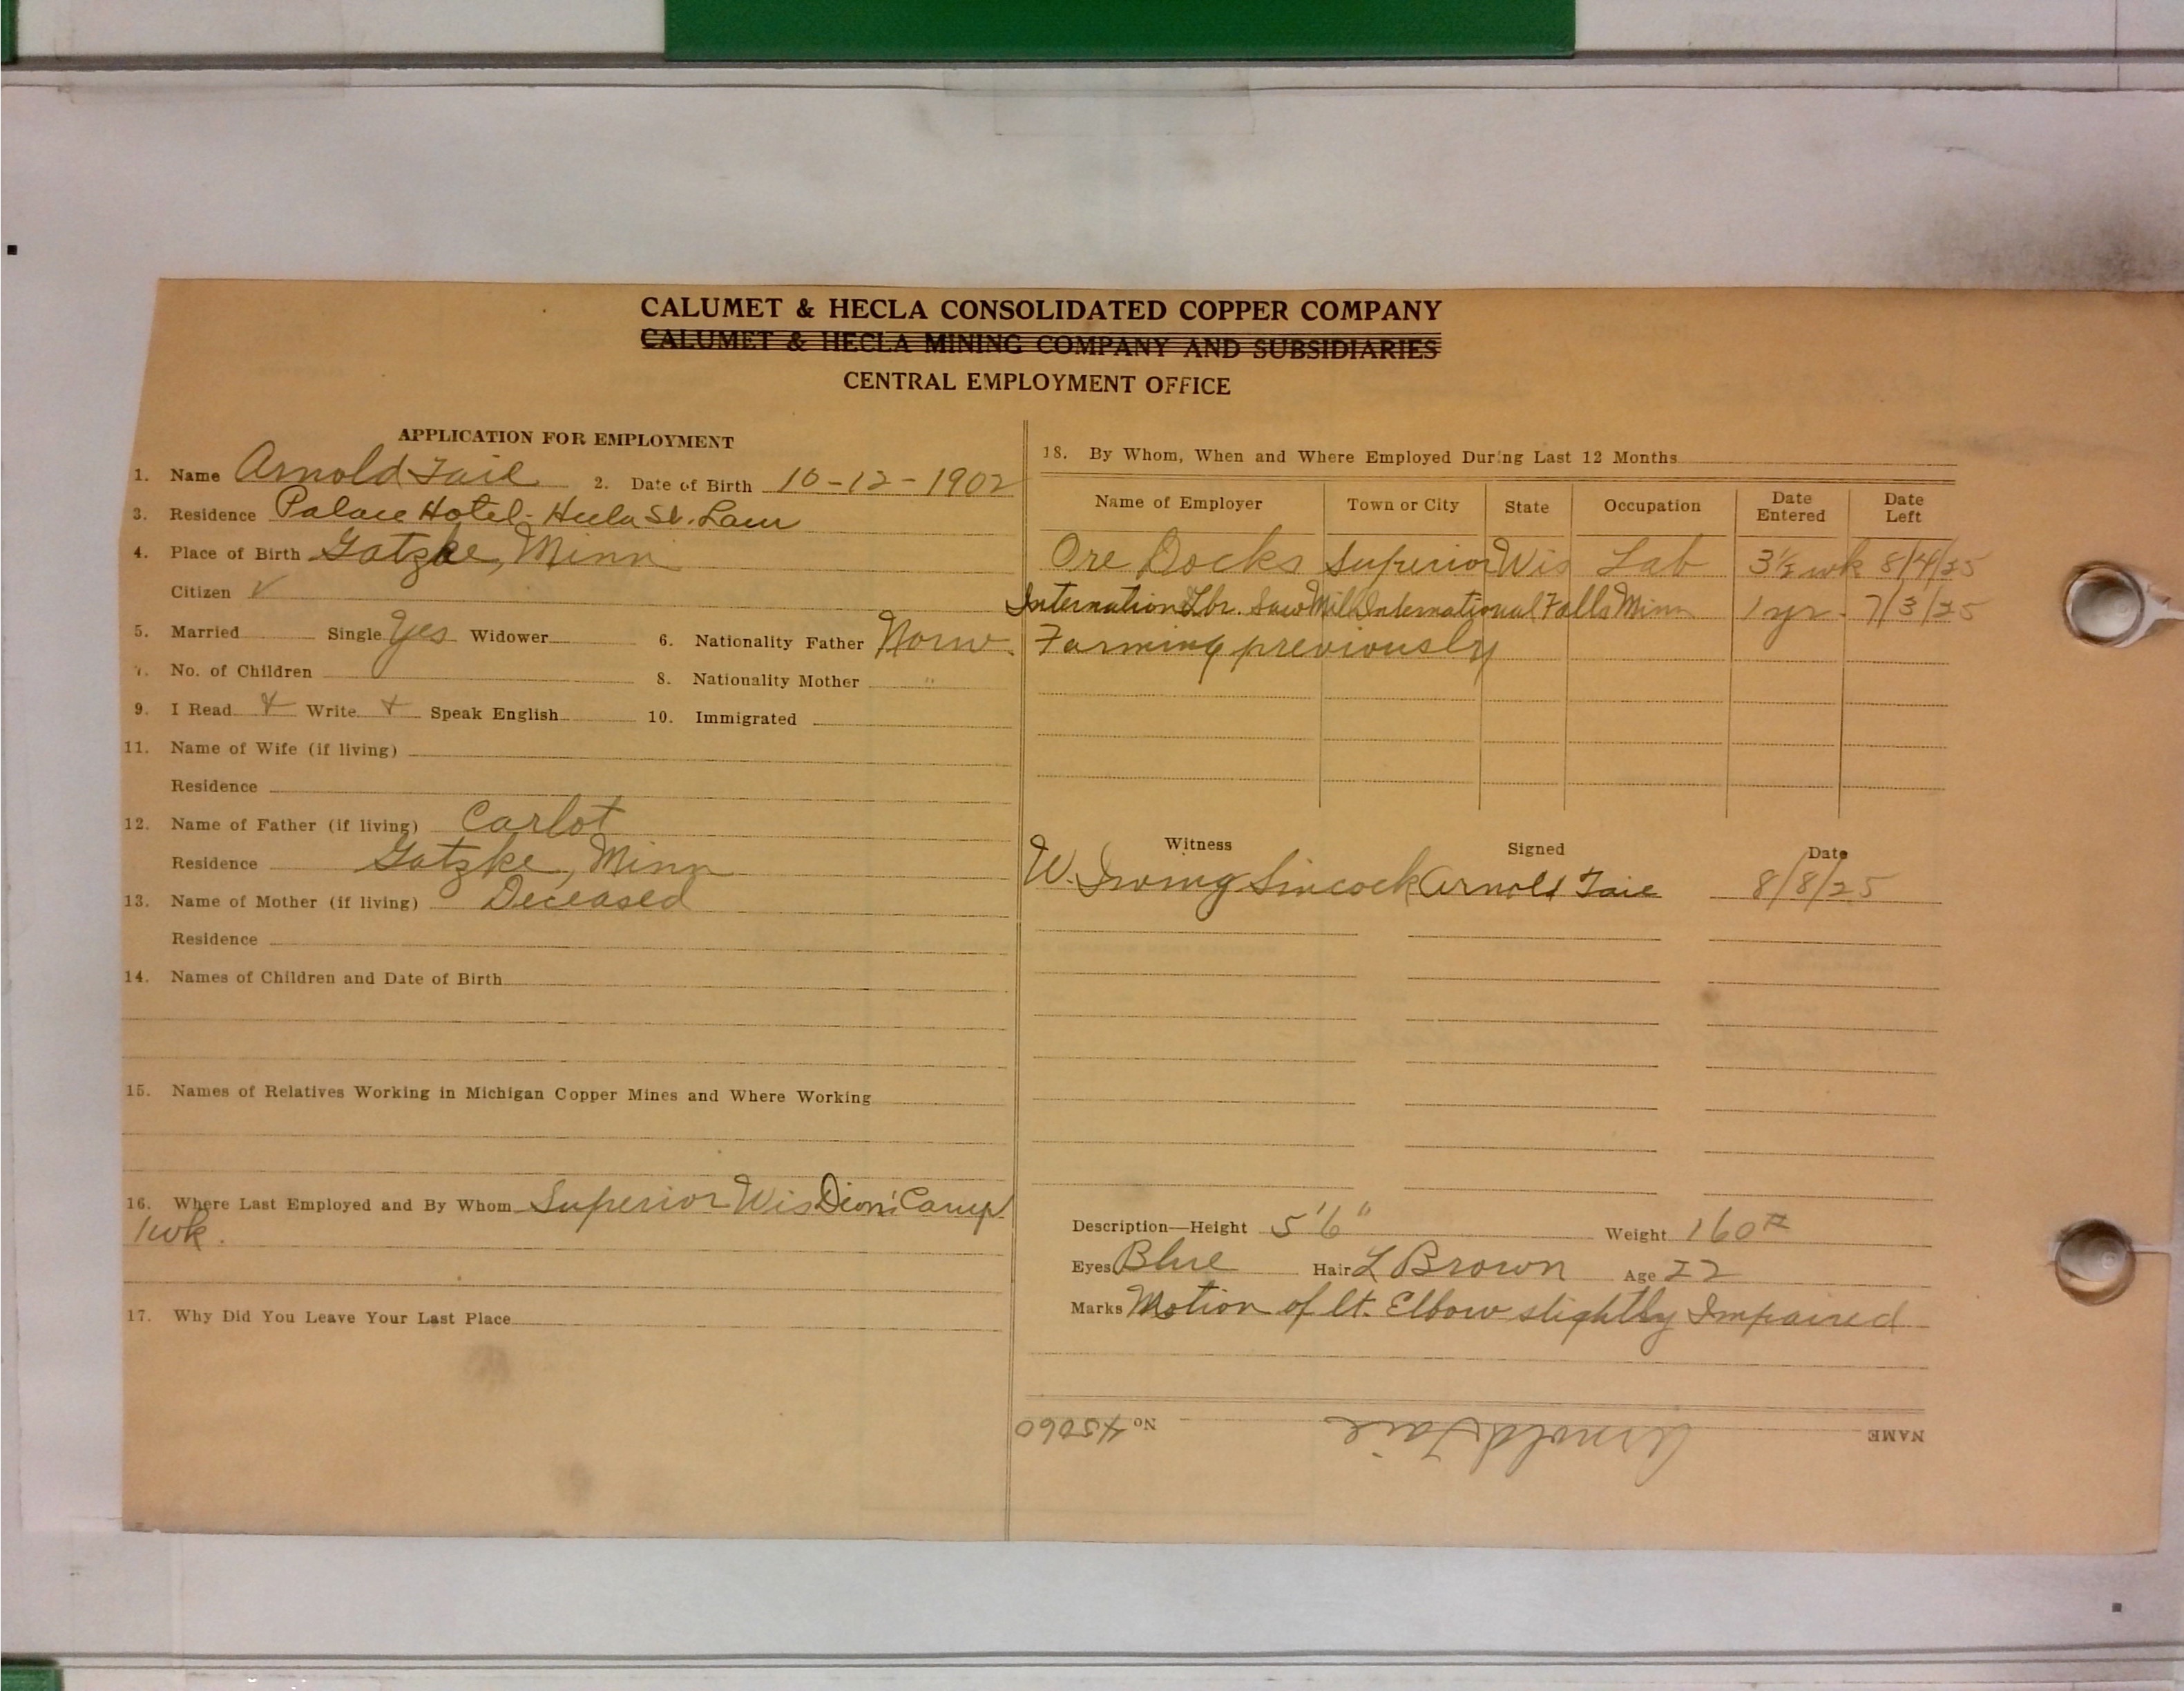 CALUMET & HECLA CONSOLIDATED COPPER COMPANY
CALUMET & HECLA MINING COMPANY AND SUBSIDIARIES
CENTRAL EMPLOYMENT OFFICE
APPLICATION FOR EMPLOYMENT
1. Name Arnold 2. Date of Birth 10-12-1902
3. Residence Palace Hotel - Hecla St. Laur
4. Place of Birth Gatzke, Minn
Citizen ✓
5. Married Single Yes Widower 6. Nationality Father Norw.
7. No. of Children 8. Nationality Mother "
9. I Read Write Speak English 10. Immigrated
11. Name of Wife (if living)
Residence
12. Name of Father (if living) Carlot
Residence Gatzke, Minn
13. Name of Mother (if living) Deceased
Residence
14. Names of Children and Date of Birth
15. Names of Relatives Working in Michigan Copper Mines and Where Working
16. Where Last Employed and By Whom Superior Wis Camp
1 wk.
17. Why Did You Leave Your Last Place
18. By Whom, When and Where Employed During Last 12 Months
Name of Employer Town or City State Occupation Date Entered Date Left
Ore Docks Superior Wis Lab 3½ wk 8/4/25
Internation Lbr. Saw Mill International Falls Minn 1 yr. 7/3/25
Farming previously
Witness Signed Date
W. Irving Sincock Arnold 8/8/25
Description—Height 5'6" Weight 160#
Eyes Blue Hair L Brown Age 22
Marks Motion of lt. Elbow slightly Impaired
NAME Arnold No. 45060